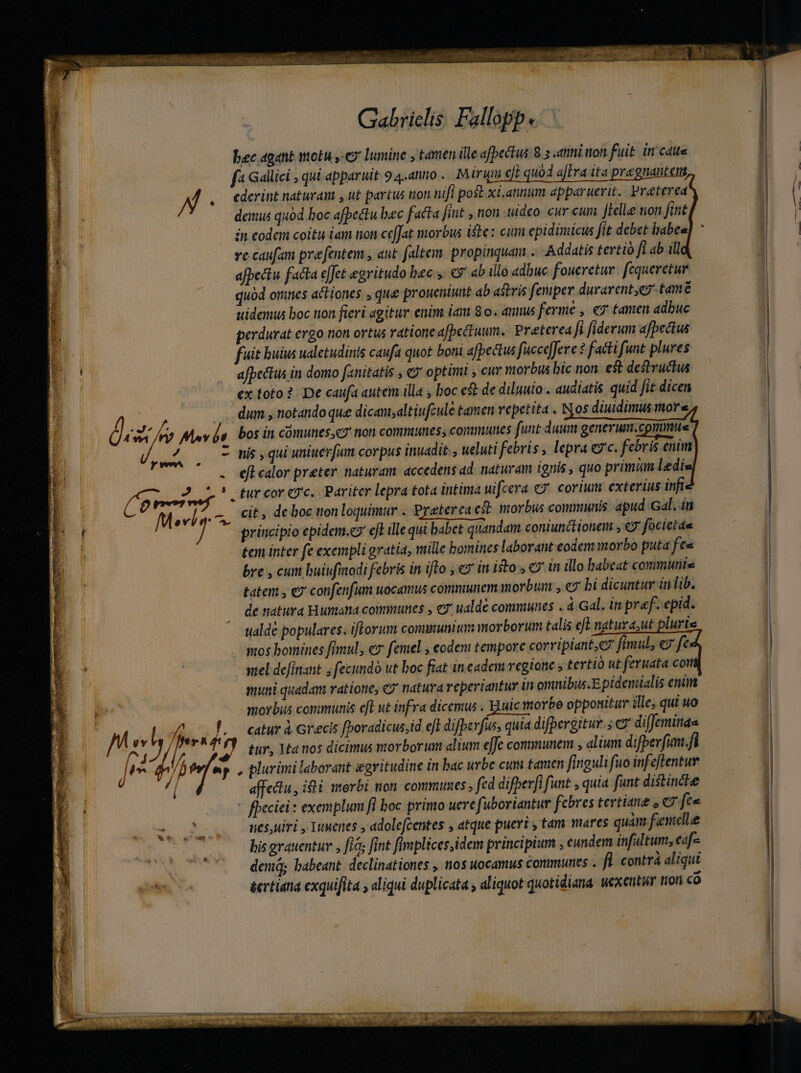 Gabrielis Fallopp.
hæc agant motu, & lumine, tamen ille aſpectus 8 3 .anni non fuit in cauſ=
ſa Gallici, qui apparuit 94.anno. Mirum eſt quòd aſtra ita prægnantem
N.
ederint naturam, ut partus non niſi poſt xi.annum apparuerit. Præterea
demus quòd hoc aſpectu hæc facta ſint, non uideo cur cum ſtellæ non ſint
in eodem coitu iam non ceſſat morbus iſte: cum epidimicus ſit debet habe=
re cauſam præſentem, aut ſaltem propinquam. Addatis tertiò ſi ab illo
aſpectu facta eſſet ægritudo hæc, & ab illo adhuc foueretur ſequeretur
quòd omnes actiones, quæ proueniunt ab aſtris ſemper durarent,& tamē
uidemus hoc non fieri agitur enim iam 80. annus ferme, & tamen adhuc
perdurat ergo non ortus ratione aſpectuum. Præterea ſi ſiderum aſpectus
fuit huius ualetudinis cauſa quot boni aſpectus ſucceſſere? facti ſunt plures
aſpectus in domo ſanitatis, & optimi, cur morbus hic non eſt deſtructus
ex toto? De cauſa autem illa, hoc eſt de diluuio. audiatis quid ſit dicen
dum, notando quæ dicam,altiuſculè tamen repetita. Nos diuidimus mor=
bos in cōmunes,& non communes, communes ſunt duum generum.commu=
nis, qui uniuerſum corpus inuadit, ueluti febris, lepra &c. febris enim
eſt calor præter naturam accedens ad naturam ignis, quo primùm lædi=
tur cor &c. Pariter lepra tota intima uiſcera & corium exterius infi=
cit, de hoc non loquimur. Præterea eſt morbus communis apud Gal. in
principio epidem.& eſt ille qui habet quandam coniunctionem, & ſocieta=
tem inter ſe exempli gratia, mille homines laborant eodem morbo puta fe=
bre, cum huiuſmodi febris in iſto, & in iſto, & in illo habeat communi=
tatem, & conſenſum uocamus communem morbum, & hi dicuntur in lib.
de natura Humana communes, & ualde communes. à Gal. in præf. epid.
ualde populares. iſtorum communium morborum talis eſt natura,ut pluri=
mos homines ſimul, & ſemel, eodem tempore corripiant,& ſimul, & ſe=
mel deſinant; ſecundò ut hoc fiat in eadem regione, tertiò ut ſeruata com
muni quadam ratione, & natura reperiantur in omnibus.Epidemialis enim
morbus communis eſt ut infra dicemus. Huic morbo opponitur ille, qui uo
catur à Græcis ſporadicus,id eſt diſperſus, quia diſpergitur; & diſſemina=
tur, Ita nos dicimus morborum alium eſſe communem, alium diſperſum.ſi
plurimi laborant ægritudine in hac urbe cum tamen ſinguli ſuo infeſtentur
affectu, iſti morbi non communes, ſed diſperſi ſunt, quia ſunt diſtinctæ
ſpeciei: exemplum ſi hoc primo uere ſuboriantur febres tertianæ, & ſe=
nes,uiri, Iuuenes, adoleſcentes, atque pueri, tam mares quàm fæmellæ
his grauentur, ſíq; ſint ſimplices,idem principium, eundem inſultum, eaſ=
demq; habeant declinationes, nos uocamus communes. ſi contrà aliqui
tertiana exquiſita, aliqui duplicata, aliquot quotidiana uexentur non cō